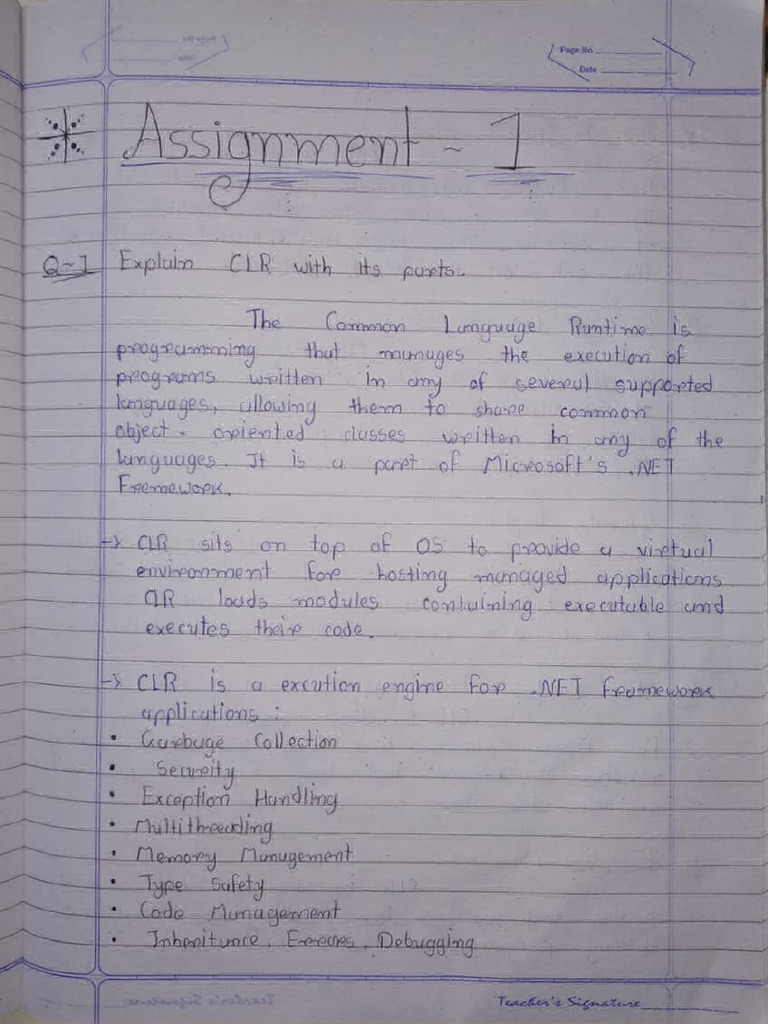 Page No
Date
Assignment - 1
Q-1 Explain CLR with its parts.
The Common Language Runtime is
programming that manages the execution of
programs written in any of several supported
languages, allowing them to share common
object - oriented classes written in any of the
languages. It is a part of Microsoft's .NET
Framework.
-> CLR sits on top of OS to provide a virtual
environment for hosting managed applications
CLR loads modules containing executable and
executes their code.
-> CLR is a excution engine for .NET framework
applications :
• Garbage Collection
• Security
• Exception Handling
• Multithreading
• Memory Management
• Type Safety
• Code Management
• Inheritance, Errors, Debugging
Teacher's Signature